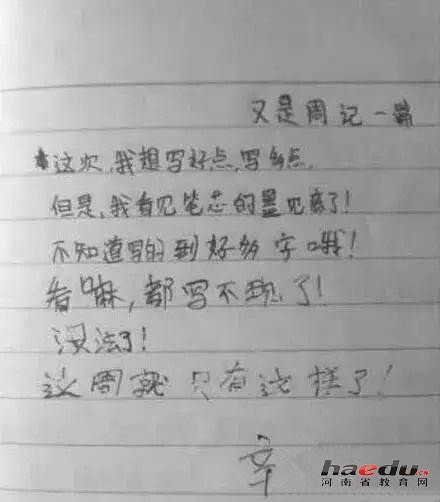 又是周记一篇
这次,我想写好点,写多点,
但是,我看见笔芯的墨见底了!
不知道写的到好多字哦!
看嘛,都写不现了!
没法了!
这周就只有这样了!
haedu.cn
河南省教育网